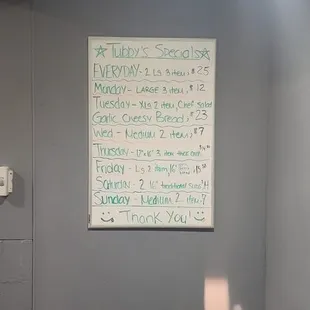 Tubby's Specials
EVERYDAY - 2 LG 3 item, $25
Monday - LARGE 3 item, $12
Tuesday - XLG 2 item, Chef Salad
Garlic Cheesy Bread, $23
Wed - Medium 2 item, $7
Thursday - 3 item thin crust
Friday - LG 2 item, 16"
Saturday - 2 16" traditional Subs
Sunday - Medium 2 item 7
Thank You!